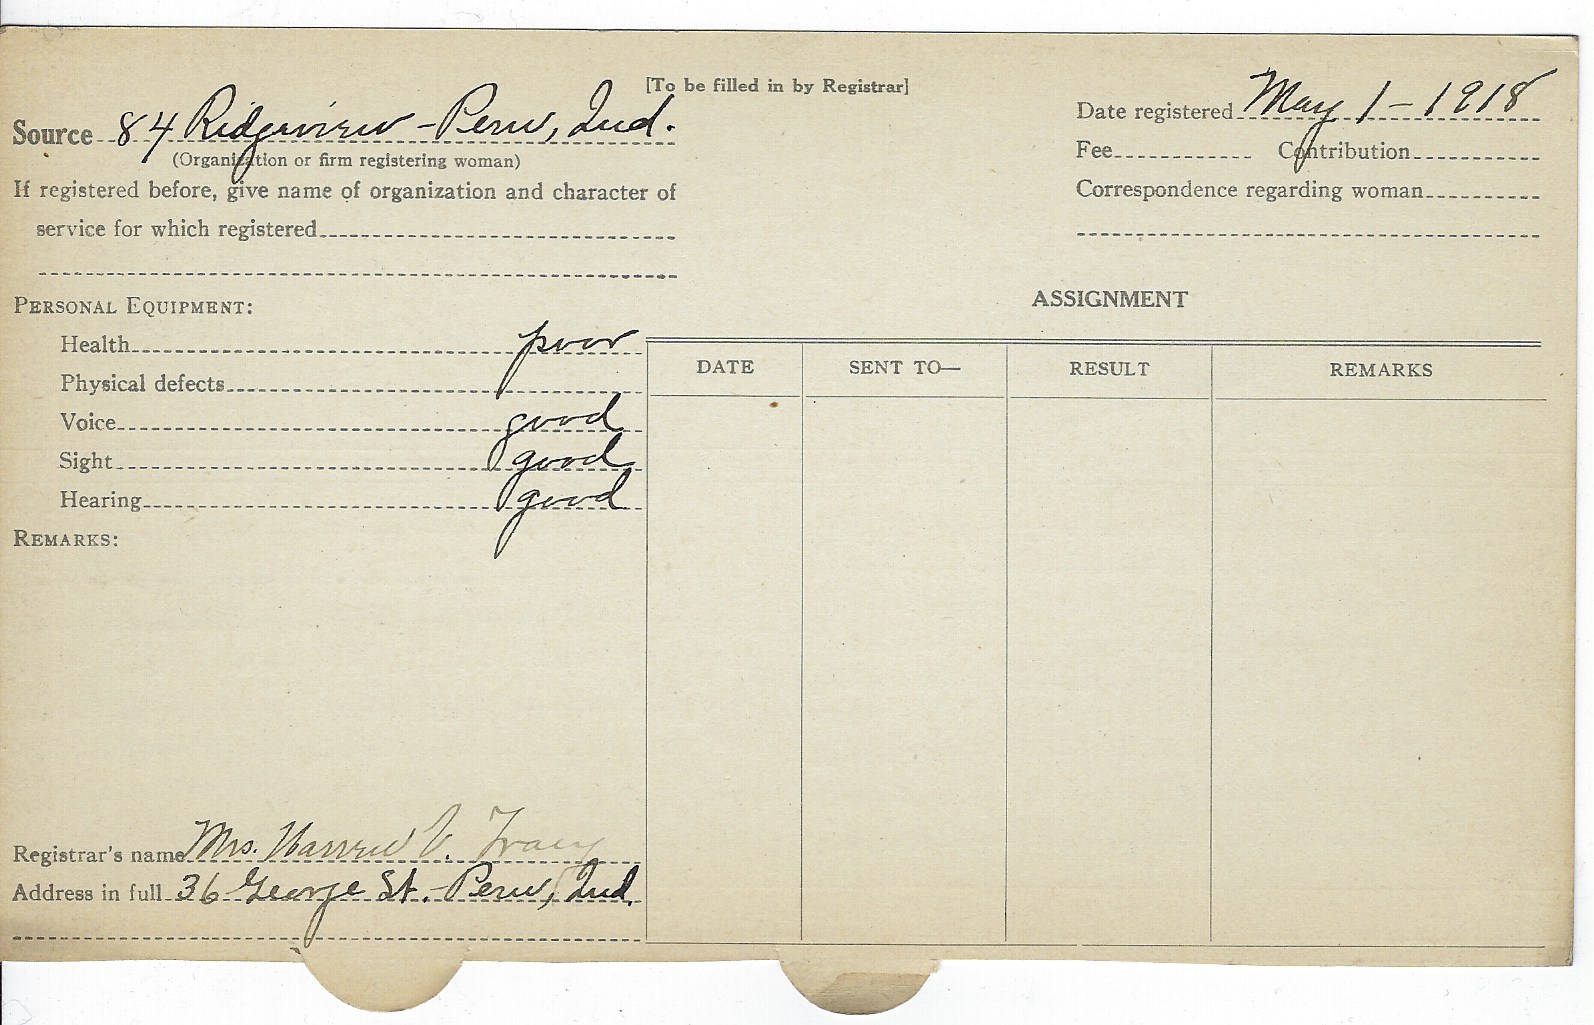 [To be filled in by Registrar]
Source 84 Ridgeview - Peru, Ind.
(Organization or firm registering woman)
If registered before, give name of organization and character of
service for which registered
Date registered May 1 - 1918
Fee Contribution
Correspondence regarding woman
PERSONAL EQUIPMENT:
Health poor
Physical defects
Voice good
Sight good
Hearing good
REMARKS:
ASSIGNMENT
DATE SENT TO— RESULT REMARKS
Registrar's name Mrs. V. Tracy
Address in full 36 George St. - Peru, Ind.